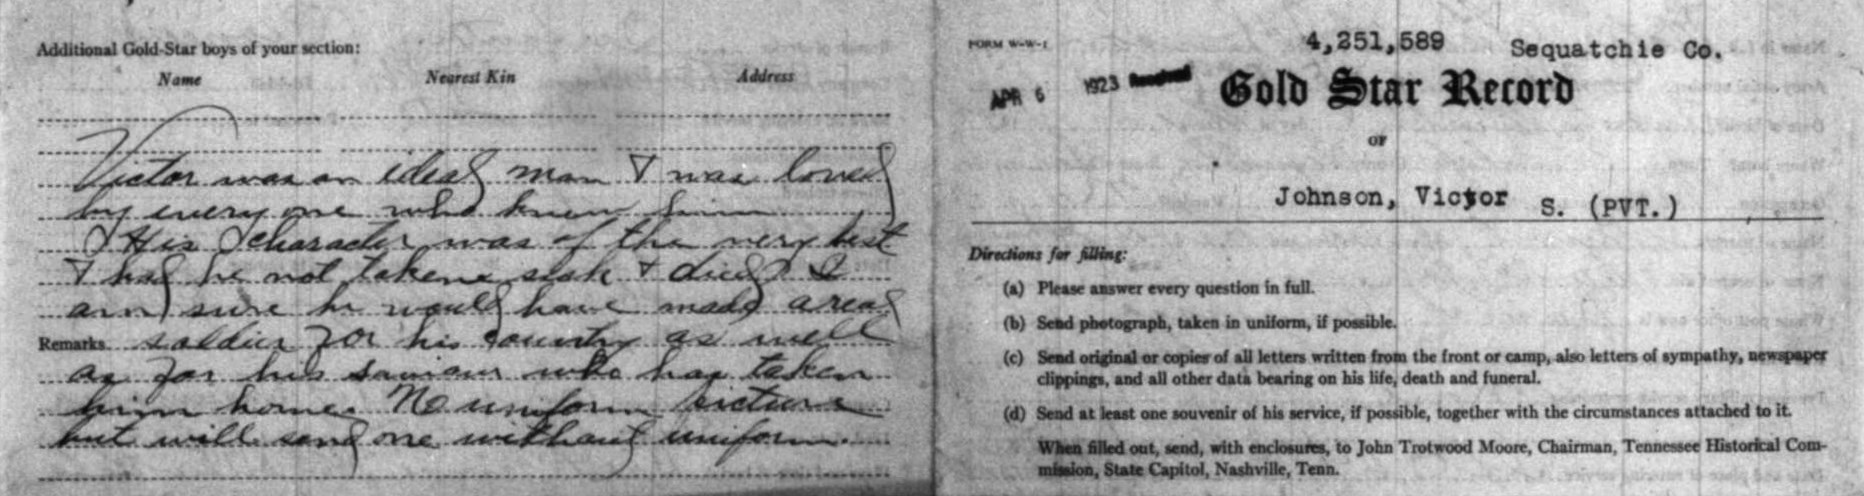 Additional Gold-Star boys of your section:
Name Nearest Kin Address
Victor was an ideal man & was loved
by every one who knew him
& His character was of the very best
& had he not taken sick & died I
am sure he would have made a real
Remarks soldier for his country as well
as for his saviour who has taken
him home. No uniform picture
but will send one without uniform.
FORM W-W-1
4,251,589 Sequatchie Co.
APR 6 1923 Received
Gold Star Record
OF
Johnson, Victor S. (PVT.)
Directions for filling:
(a) Please answer every question in full.
(b) Send photograph, taken in uniform, if possible.
(c) Send original or copies of all letters written from the front or camp, also letters of sympathy, newspaper
clippings, and all other data bearing on his life, death and funeral.
(d) Send at least one souvenir of his service, if possible, together with the circumstances attached to it.
When filled out, send, with enclosures, to John Trotwood Moore, Chairman, Tennessee Historical Com-
mission, State Capitol, Nashville, Tenn.